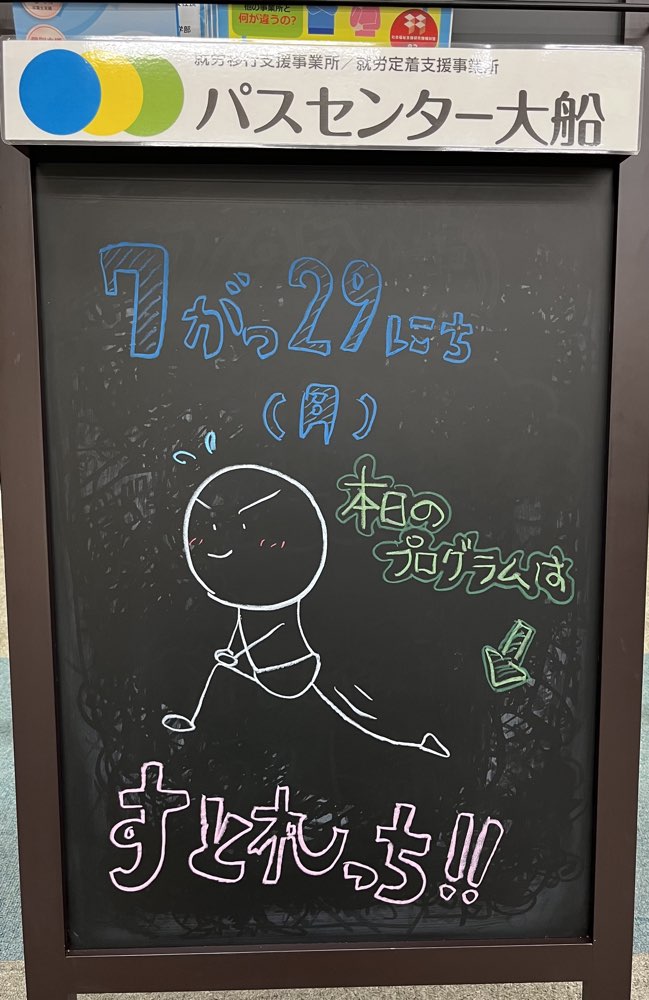 他の事業所と
何が違うの?
就労移行支援事業所／就労定着支援事業所
パスセンター大船
7がつ29にち
(月)
本日の
プログラムは
すとれっち!!